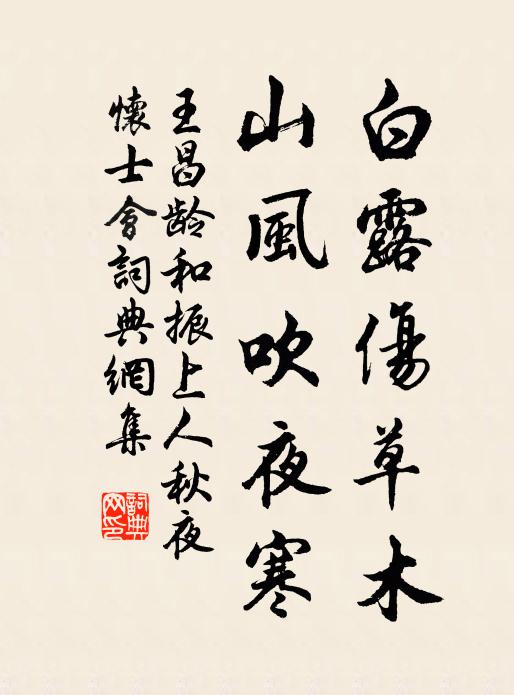 白露傷草木
山風吹夜寒
王昌龄和振上人秋夜
懷士會詞典網集
詞典
网印